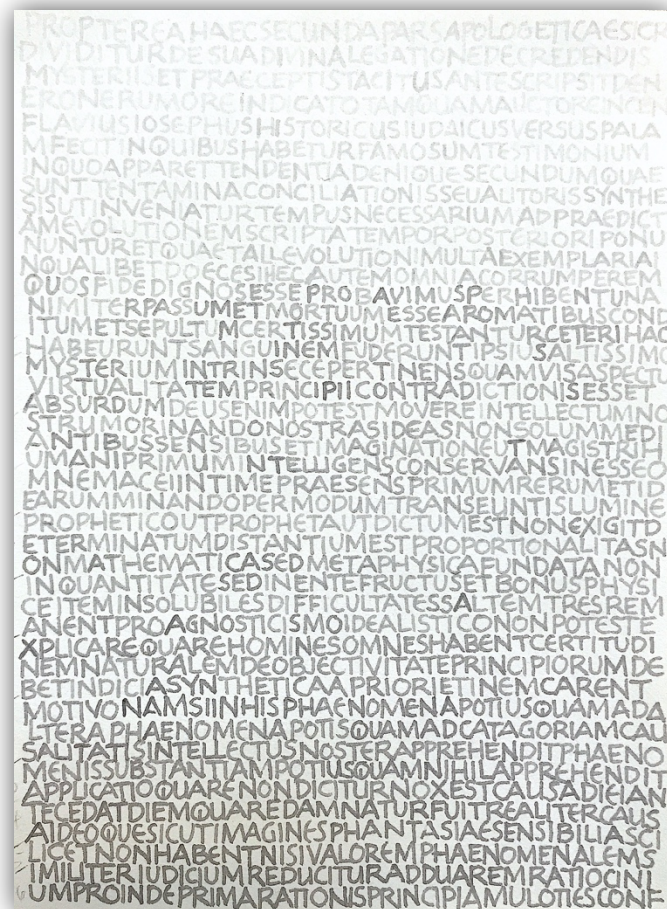 PROPTEREAHAECSECUNDAPARSAPOLOGETICAESICR
DIVIDITURDESUADIVINALEGATIONEDECREDENDIS
MYSTERIISETPRAECEPTISTACITUSANTESCRIPSITDEN
ERONERUMOREINDICATOTAMQUAMAUCTOREINCEN
FLAVIUSIOSEPHUSHISTORICUSIUDAICUSVERSUSPALA
MFECITINQUIBUSHABETURFAMOSUMTESTIMONIUM
INQUOAPPARETTENDENTIADENIQUESECUNDUMQUAE
SUNTTENTAMINACONCILIATIONISSEUALITORISSYNTHE
SISUTINVENIATURTEMPUSNECESSARIUMADPRAEDICT
AMEVOLUTIONEMSCRIPTATEMPORPOSTERIORIPONU
NUNTURETQUAETALLEVOLUTIONIMULTAEXEMPLARIA
NQUALIBETDOECESIHECAUTEMOMNIACORRUMPEREM
QUOSFIDEDIGNOSESSEPROBAVIMUSPERHIBENTUNA
NIMITERPASSUMETMORTUUMESSEAROMATIBUSCOND
ITUMETSEPULTUMCERTISSIMUMTESTANTURCETERIHAC
HABEURUNTSANGUINEMFUDERUNTIPSIUSALTISSIMO
MYSTERIUMINTRINSECEPERTINENSQUAMVISASPECT
VIRTUALITATEMPRINCIPIICONTRADICTIONISESSET
ABSURDUMDEUSENIMPOTESTMOVEREINTELLECTUMNO
STRUMORINANDONOSTRASIDEASNONSOLUMMEDI
ANTIBUSSENSIBUSETIMAGINATIONEUTMAGISTRIH
UMANIPRIMUMINTELLIGENSCONSERVANSINESSEO
MNEMACEIINTIMEPRAESENSPRIMUMRERUMETID
EARUMMINANDOPERMODUMTRANSEUNTISLUMINE
PROPHETICOUTPROPHETAUTDICTUMESTNONEXIGITD
ETERMINATUMDISTANTIUMESTPROPORTIONALITASN
ONMATHEMATICASEDMETAPHYSICAFUNDATANON
INQUANTITATESEDINENTEFRUCTUSETBONUSPHYSI
CEITEMINSOLUBILESDIFFICULTATESSALTEMTRESREM
ANENTPROAGNOSTICISMOIDEALISTICONONPOTESTE
XPLICAREQUAREHOMINESOMNESHABENTCERTITUDI
NEMNATURALEMDEOBJECTIVITATEPRINCIPIORUMDE
BETINDICIASYNTHETICAAPRIORIETINEMCARENT
MOTIVONAMSIINHISPHAENOMENAPOTIUSQUAMADA
LTERAPHAENOMENAPOTISQUAMADCATAGORIAMCAU
SALITATISINTELLECTUSNOSTERAPPREHENDITPHAENO
MENISSUBSTANTIAMPOTIUSQUAMNIHILAPPREHENDIT
APPLICATIOQUARENONDICITURNOXESTCAUSADIEIAN
TECEDATDIEMQUAREDAMNATURFUITREALITERCAUS
AIDEOQUESICUTIMAGINESPHANTASIAESENSIBILIASCI
LICETNONHABENTNISIVALOREMPHAENOMENALEMS
IMILITERIUDICIUMREDUCITURADDUAREMRATIOCINI
UMPROINDEPRIMARATIONISPRINCIPIAMULOTIESCONF